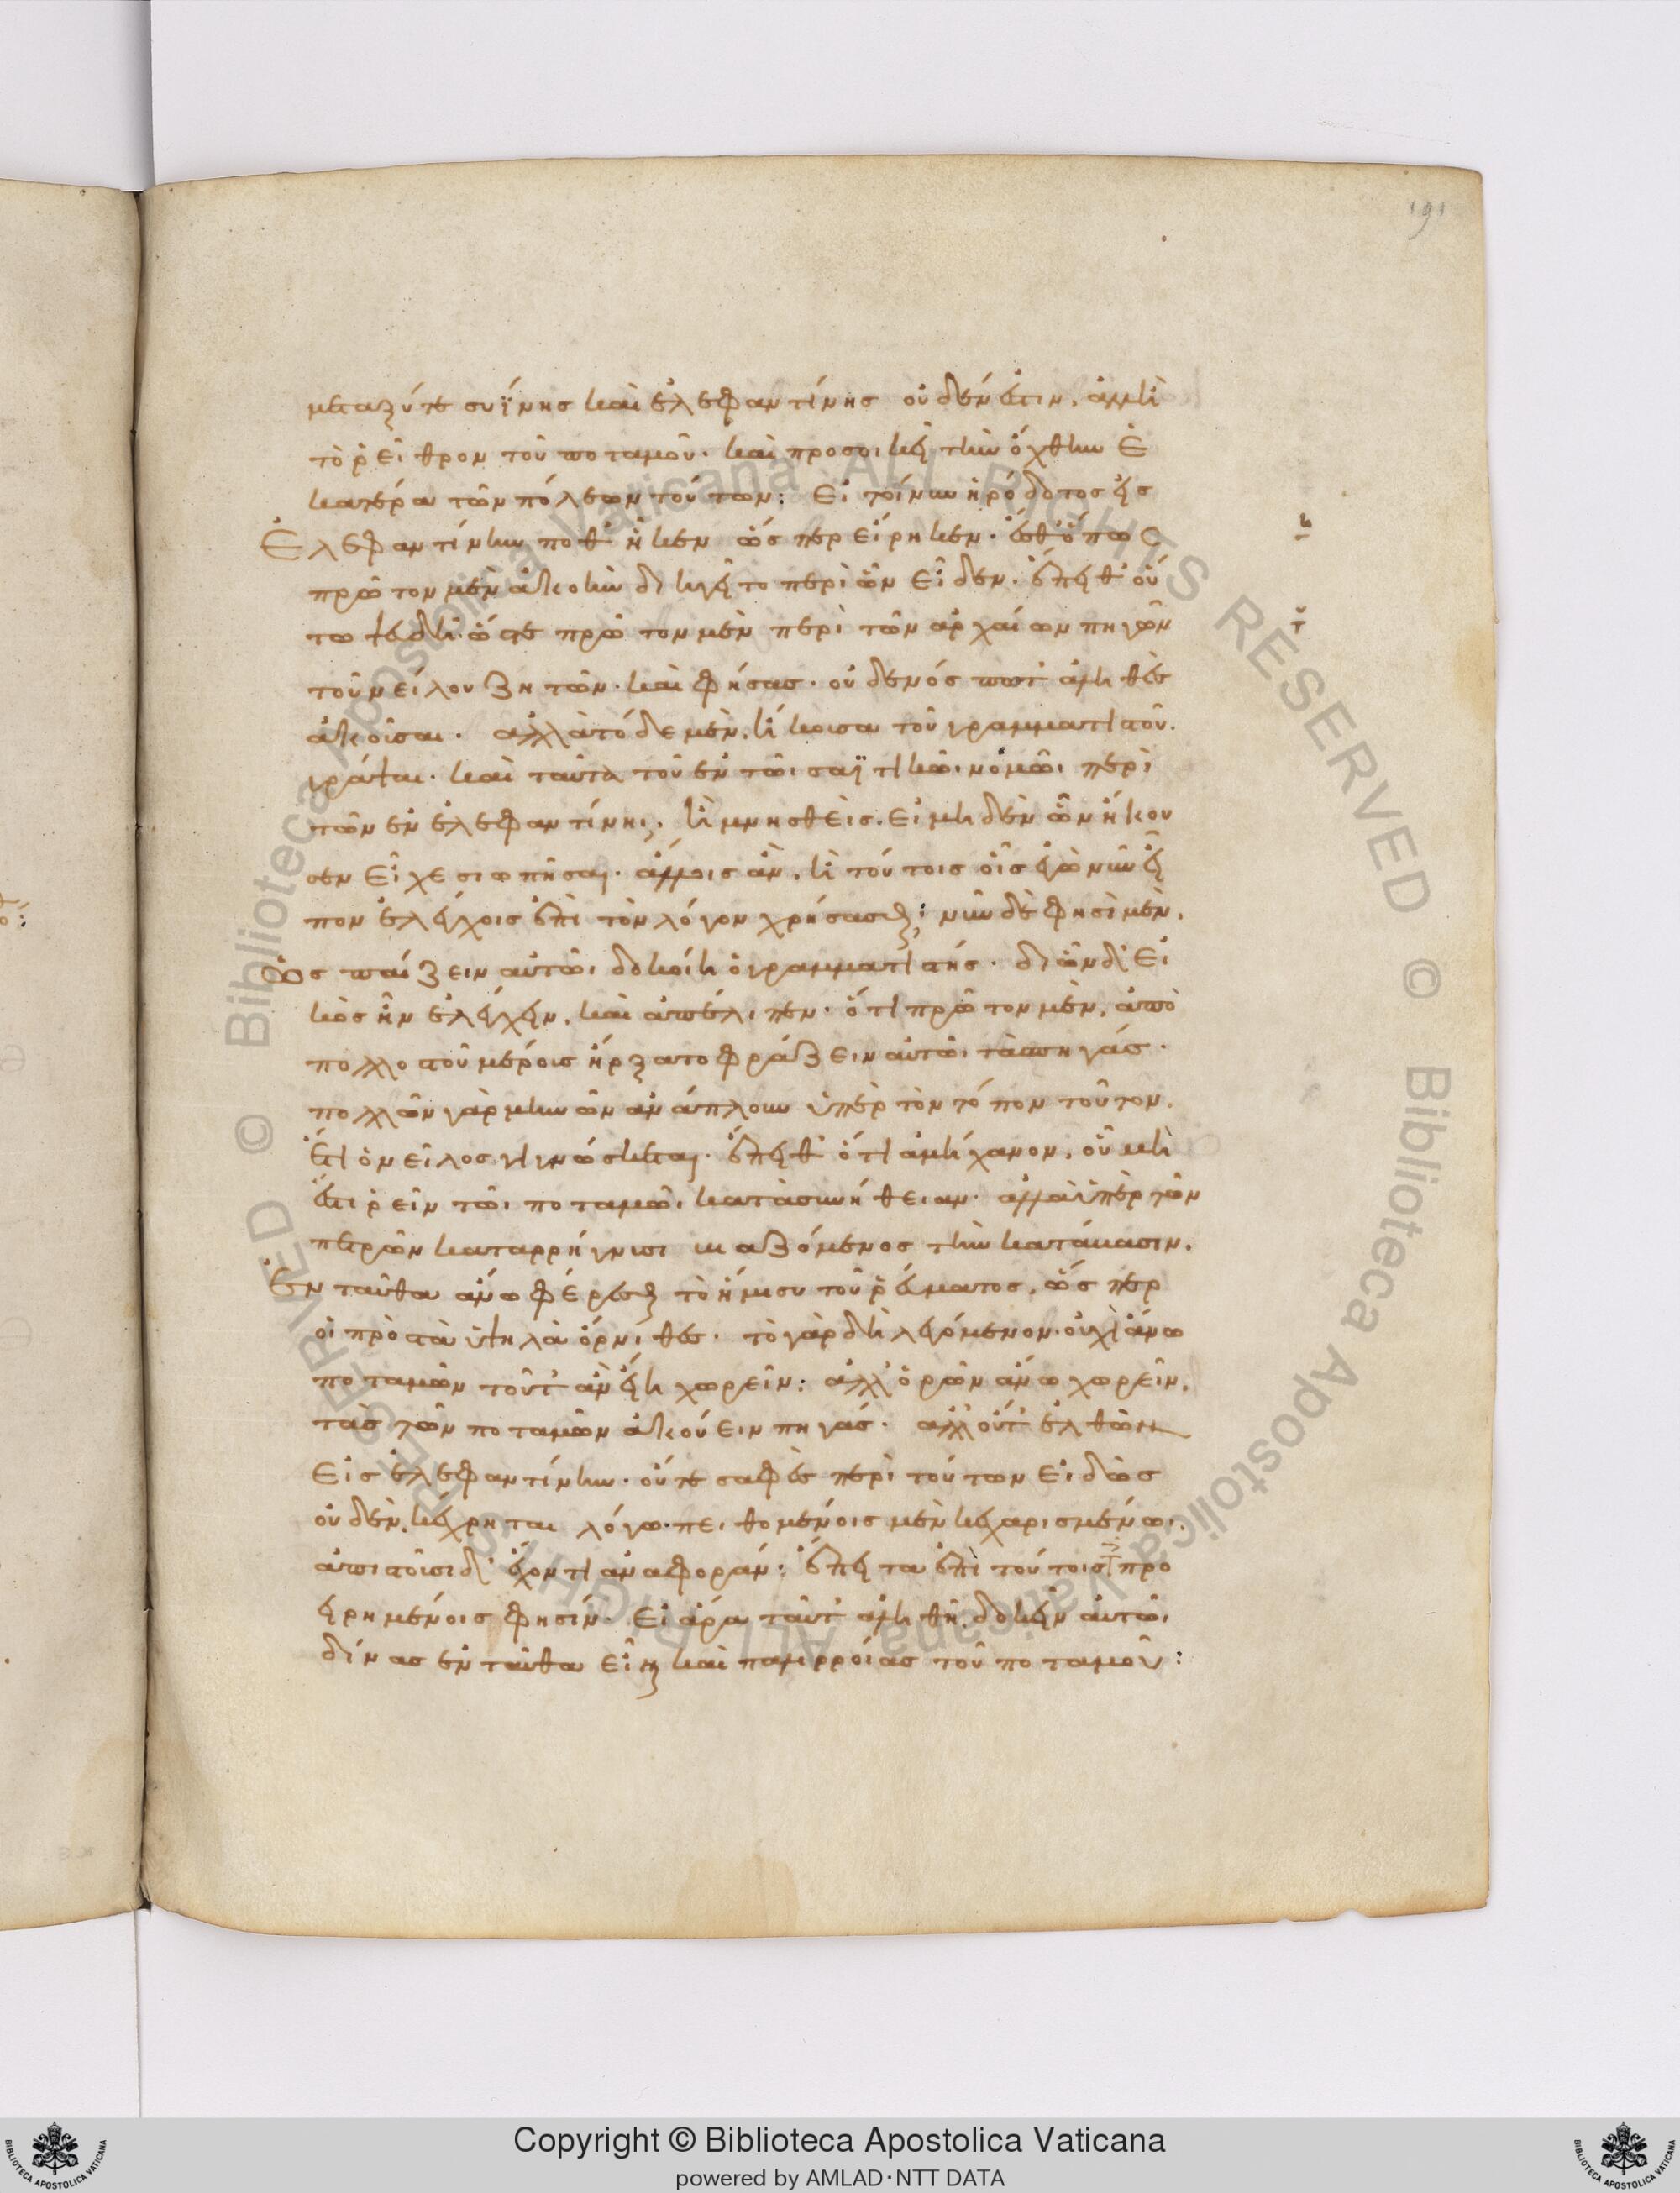 191
μεταξύ τε συΐνης καὶ ἐλεφαντίνης οὐδέν ἐστιν. ἀλλ' ἢ
τὸ ῥεῖθρον τοῦ ποταμοῦ. καὶ προσοικεῖ τὴν ὄχθην ἑ
κατέρα τῶν πόλεων τούτων: Εἰ τοίνυν ἡρόδοτος εἰς
Ἐλεφαντίνην ποθ' ἧκεν ὥσπερ εἴρηκεν. ἔσθ' ὅπως
πρῶτον μὲν ἀκοὴν διηγεῖτο περὶ ὧν εἶδεν. ἔπειθ' οὕ
τω ψευδῆ. ὥστε πρῶτον μὲν περὶ τῶν ἀρχαίων πηγῶν
τοῦ νείλου ζητῶν. καὶ φήσας. οὐδενός ποτ' ἀληθὲς
ἀκοῦσαι. ἀλλὰ τόδε μὲν. ἤκουσα τοῦ γραμματιστοῦ.
γράψαι. καὶ ταῦτα τοῦ ἐν τῶι σαϊτικῶι νομῶι περὶ
τῶν ἐν ἐλεφαντίνηι. ἢ μνησθεὶς. εἰ μηδὲν ὧν ἤκου
σεν εἶχε σιωπῆσαι. ἄλλοις ἂν. ἢ τούτοις οἷς ἐγὼ νῦν εἶ
πον ἐλέγχοις ἐπὶ τὸν λόγον χρήσασθαι; νῦν δὲ φησὶ μὲν.
ὡς παίζειν αὐτῶι δοκοίη ὁ γραμματιστής. δι' ὧν δ' εἰ
κὸς ἦν ἐλέγχειν. καὶ ἀπέλιπεν. ὅτι πρῶτον μὲν. ἀπὸ
πολλοστοῦ μέρους ἤρξατο φράζειν αὐτῶι τὰς πηγάς.
πολλῶν γὰρ μηνῶν ἀνάπλουν ὑπὲρ τὸν τόπον τοῦτον.
ἔτι ὁ νεῖλος γιγνώσκεται. ἔπειθ' ὅτι ἀμήχανον. οὗ μὴ
ἔστι ῥεῖν τῶι ποταμῶι κατὰ συνήθειαν. ἀλλὰ ὑπὲρ τῶν
πετρῶν καταρρήγνυσι βιαζόμενος τὴν κατάβασιν.
Ἐνταῦθα ἄνω φέρεσθαι τὸ ἥμισυ τοῦ ῥεύματος. ὥσπερ
οἱ πρὸς τὰ ὑψηλὰ ὄρνιθες. τὸ γὰρ δὴ λεγόμενον. οὐχὶ ἄνω
ποταμῶν τοῦτ' ἂν εἴη χωρεῖν: ἀλλ' ὁρῶν ἄνω χωρεῖν.
τὰς τῶν ποταμῶν ἀκούειν πηγάς. ἀλλ' οὔτ' ἐλθὼν
εἰς ἐλεφαντίνην. οὔτε σαφὲς περὶ τούτων εἰδὼς
οὐδὲν. κέχρηται λόγω. πειθομένοις μὲν κεχαρισμένωι.
ἀπιστοῦσι δ' ἔχοντι ἀναφοράν: ἔπειτα ἐπὶ τούτοις προ
ειρημένοις φησίν. εἰ ἄρα ταῦτ' ἀληθῆ. δοκεῖν αὐτῶι
δίνας ἐνταῦθα εἶναι καὶ παλιρροίας τοῦ ποταμοῦ:
Copyright © Biblioteca Apostolica Vaticana
powered by AMLAD·NTT DATA